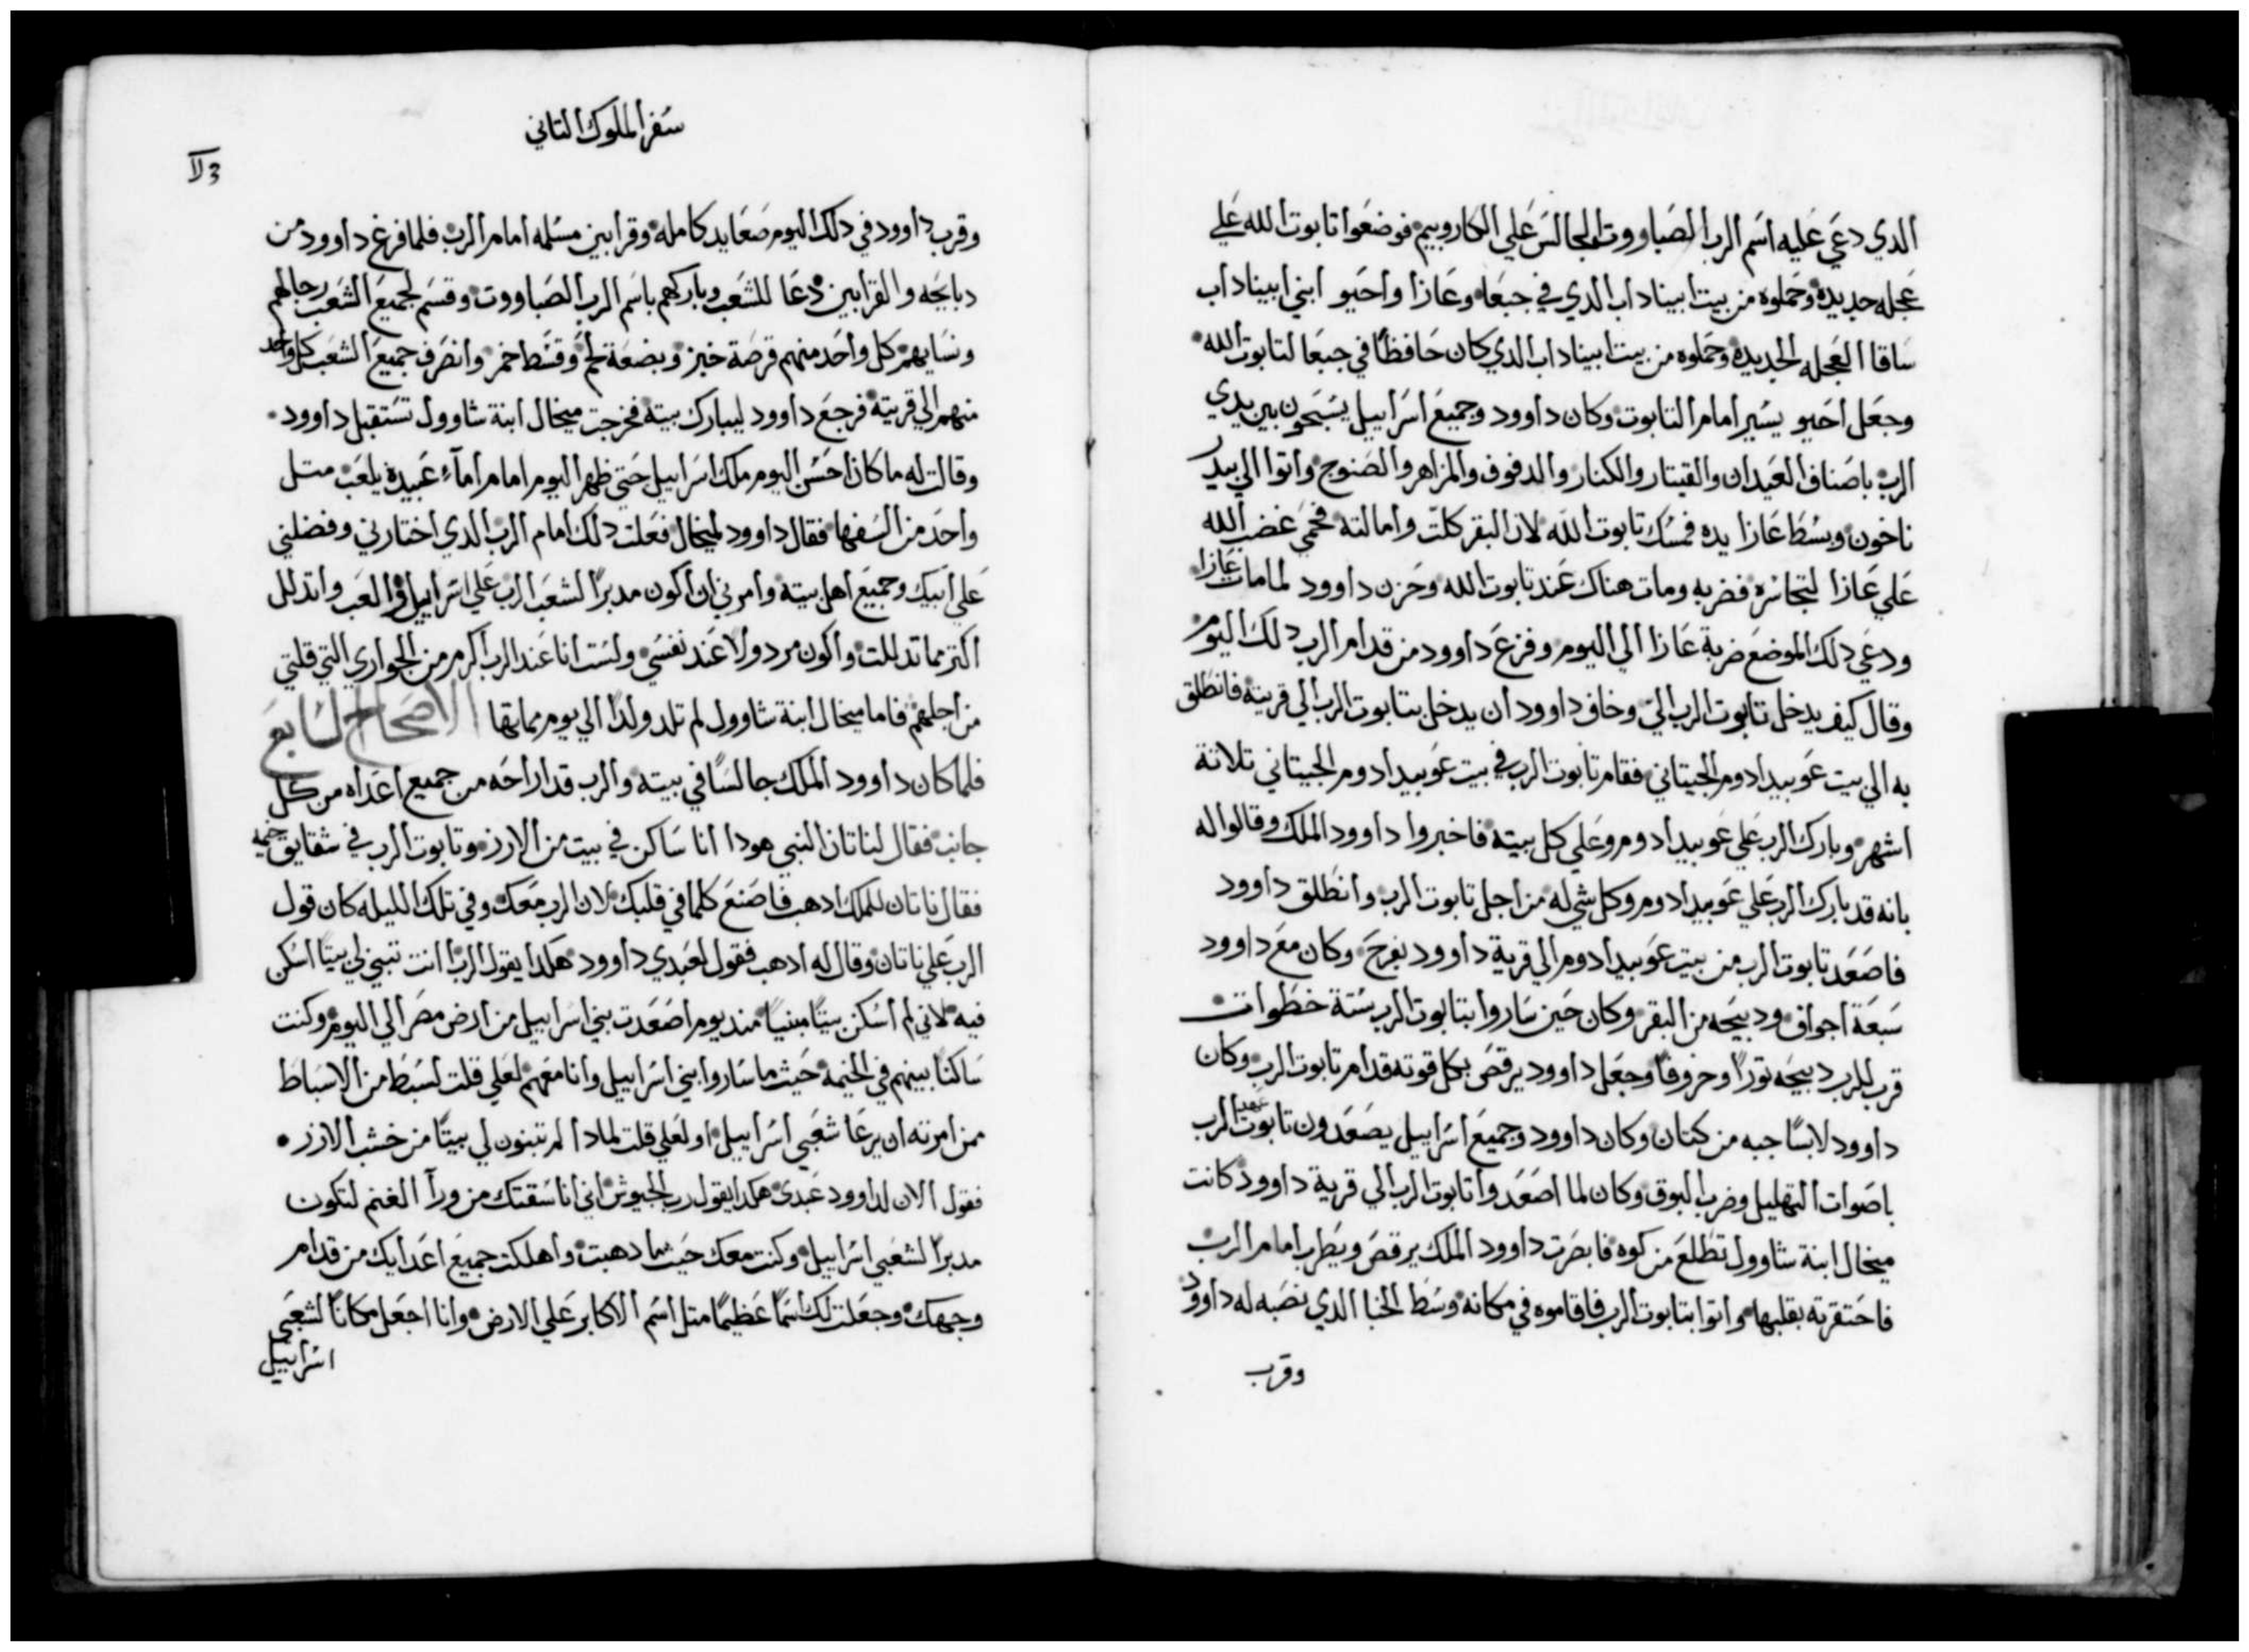 الدي دعي عليه اسم الرب الصباووت الجالس علي الكاروبيم فوضعوا تابوت الله علي
عجله جديده وحملوه من بيت ابيناداب الدي في جبعا وعازا واحيو ابني ابيناداب
ساقا العجله الجديده وحملوه من بيت ابيناداب الدي كان حافظا في جبعا لتابوت الله
وجعل احيو يسير امام التابوت وكان داوود وجميع اسراييل يسبحون بين يدي
الرب باصناف العيدان والقيتار والكنار والدفوف والمزاهر والصنوج واتوا الي بيدر
ناخون وبسط عازا يده فمسك تابوت الله لان البقر كلت وامالته فحمي غضب الله
علي عازا لتجاسره فضربه ومات هناك عند تابوت الله وحزن داوود لما مات عازا
ودعي دلك الموضع ضربة عازا الي اليوم وفزع داوود من قدام الرب دلك اليوم
وقال كيف يدخل تابوت الرب الي وخاف داوود ان يدخل بتابوت الرب الي قريته فانطلق
به الي بيت عوبيدادوم الجيتاني فقام تابوت الرب في بيت عوبيدادوم الجيتاني تلاتة
اشهر وبارك الرب علي عوبيدادوم وعلي كل بيته فاخبروا داوود الملك وقالوا له
بانه قد بارك الرب علي عوبيدادوم وكل شي له من اجل تابوت الرب وانطلق داوود
فاصعد تابوت الرب من بيت عوبيدادوم الي قرية داوود بفرح وكان مع داوود
سبعة اجواق ودبيحه من البقر وكان حين ساروا بتابوت الرب ستة خطوات
قرب للرب دبيحه تورا وخروفا وجعل داوود يرقص بكل قوته قدام تابوت الرب وكان
داوود لابسا جبه من كتان وكان داوود وجميع اسراييل يصعدون تابوت عهد الرب
باصوات التهليل وضرب البوق وكان لما اصعدوا تابوت الرب الي قرية داوود كانت
ميخال ابنة شاوول تطلع من كوه فابصرت داوود الملك يرقص ويطرب امام الرب
فاحتقرته بقلبها واتوا بتابوت الرب فاقاموه في مكانه وسط الخبا الدي نصبه له داوود
وقرب
سفر الملوك التاني
وقرب داوود في دلك اليوم صعايد كامله وقرابين مسلمه امام الرب فلما فرغ داوود من
دبايحه والقرابين دعا للشعب وباركهم باسم الرب الصباووت وقسم لجميع الشعب رجالهم
ونسايهم كل واحد منهم قرصة خبز وبضعة لحم وقسط خمر وانصرف جميع الشعب كل واحد
منهم الي قريته فرجع داوود ليبارك بيته فخرجت ميخال ابنة شاوول تستقبل داوود
وقالت له ما كان احسن اليوم ملك اسراييل حتي ظهر اليوم امام امآء عبيده يلعب متل
واحد من السفها فقال داوود لميخال فعلت دلك امام الرب الدي اختارني وفضلني
علي ابيك وجميع اهل بيته وامرني ان اكون مدبرا لشعب الرب علي اسراييل والعب واتدلل
اكتر مما تدللت واكون مردولا عند نفسي ولست انا عند الرب اكرم من الجواري التي قلتي
من اجلهم فاما ميخال ابنة شاوول لم تلد ولدا الي يوم مماتها الاصحاح السابع
فلما كان داوود الملك جالسا في بيته والرب قد اراحه من جميع اعداه من كل
جانب فقال لناتان النبي هودا انا ساكن في بيت من الارز وتابوت الرب في شقايق خيمه
فقال ناتان للملك ادهب فاصنع كلما في قلبك لان الرب معك وفي تلك الليله كان قول
الرب علي ناتان وقال له ادهب فقول لعبدي داوود هكدا يقول الرب انت تبني لي بيتا اسكن
فيه لاني لم اسكن بيتا مبنيا مند يوم اصعدت بني اسراييل من ارض مصر الي اليوم وكنت
ساكنا بينهم في الخيمه حيث ما ساروا بني اسراييل وانا معهم لعلي قلت لسبط من الاسباط
ممن امرته ان يرعا شعبي اسراييل او لعلي قلت لمادا لم تبنون لي بيتا من خشب الارز
فقول الان لداوود عبدي هكدا يقول رب الجيوش اني انا سقتك من ورآ الغنم لتكون
مدبرا لشعبي اسراييل وكنت معك حيث ما دهبت واهلكت جميع اعدايك من قدام
وجهك وجعلت لك اسما عظيما متل اسم الاكابر علي الارض وانا اجعل مكانا لشعبي
اسراييل